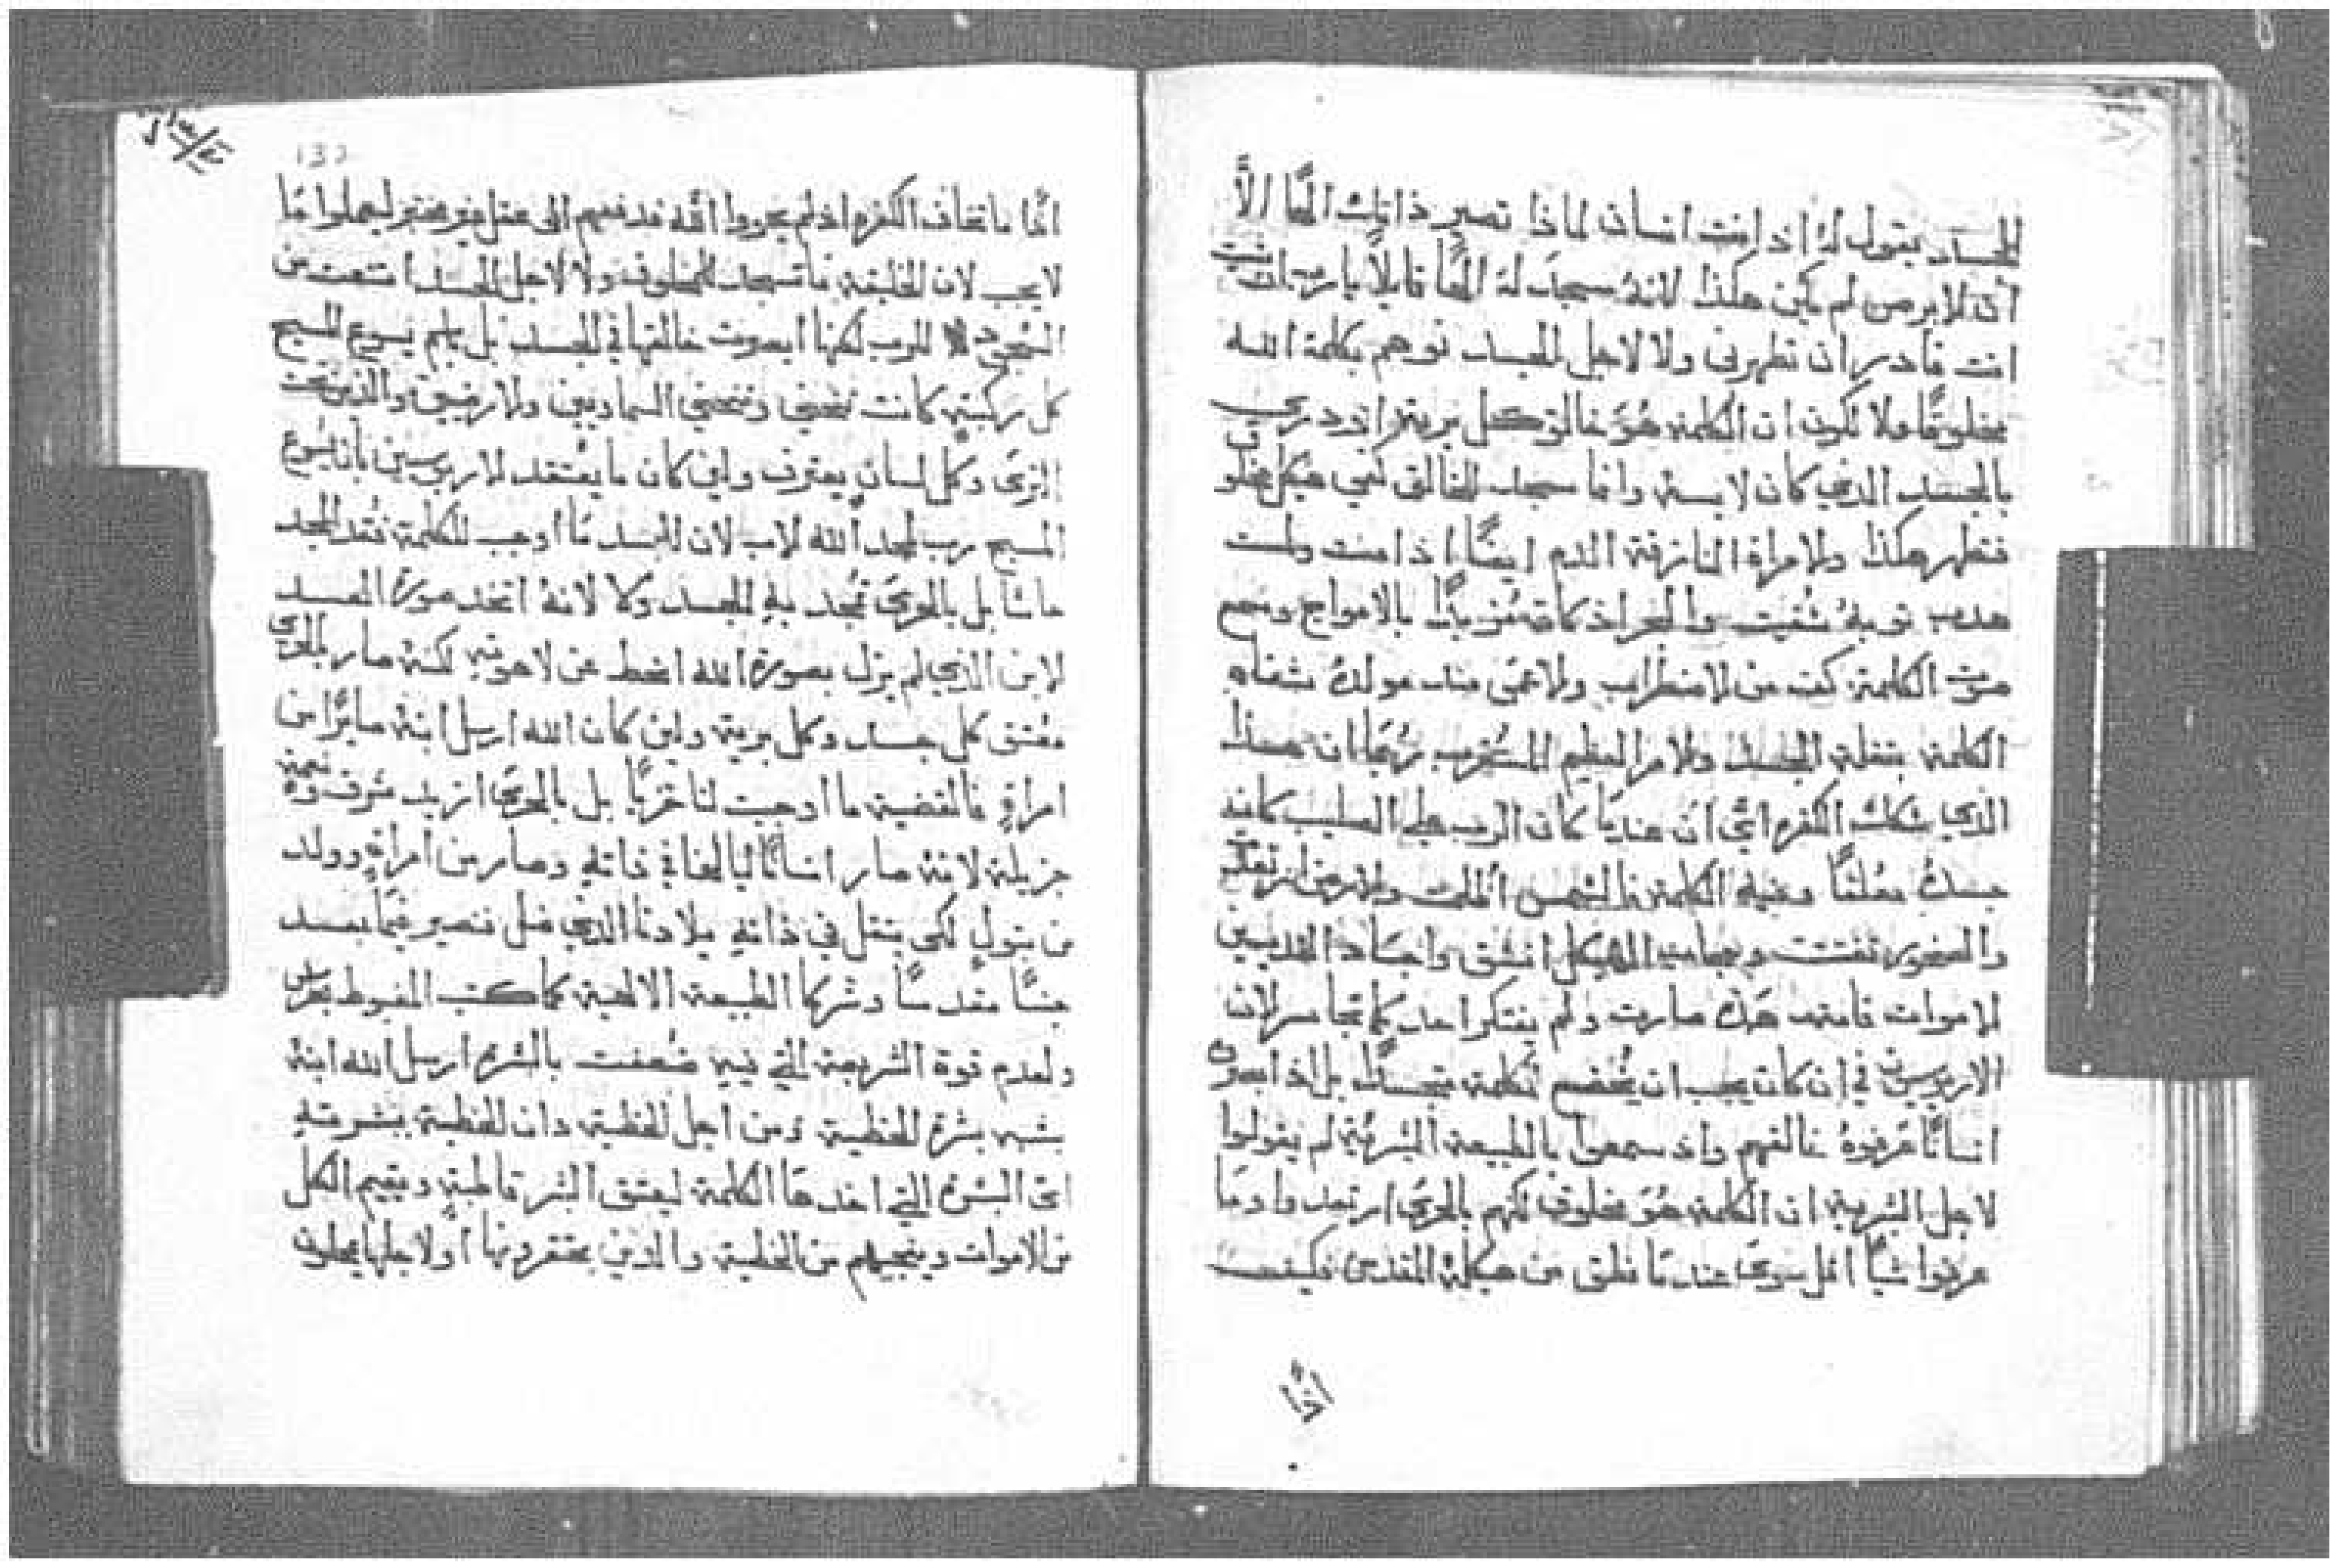 للجسد يقول له اذ انت انسان لماذا تصير ذاتك الهًا الاّ
أن الابرص لم يكن هكذا لانه سجد له الهًا قايلاً يا رب ان شيت
انت قادر ان تطهرني ولا لاجل الجسد توهم بكلمة الله
مخلوقًا ولا لكون ان الكلمة هُوَ خالق كل برية ازدرى
بالجسد الذي كان لابسه وانما سجد للخالق كفي هيكل مخلوق
فتطهر هكذا والامراة النازفة الدم ايضًا اذ امنت ولمست
هدب ثوبه شُفيت والبحر اذ كان مُزبدًا بالامواج وسمع
صوت الكلمة كف من الاضطراب والاعمى منذ مولده شفاه
الكلمة بتفلة الجسد والامر العظيم المستغرب رُبما ان هذا
الذي شكك الكفره اي ان عندما كان الرب على الصليب كانه
جسدهُ معلقًا وفيه الكلمة فالشمس اظلمت والارض تزلزلت
والصخور تفتتت وحجاب الهيكل انشق واجساد القديسين
الاموات قامت هذه صارت ولم يفتكر احد كما تجاسر الان
الاريوسيين في ان كان يجب ان يُخضع لكلمة متجسدًا بل اذ ابصروا
انسانًا عرفوهُ خالقهم واذ سمعوا بالطبيعة البشرية لم يقولوا
لاجل البشرية ان الكلمة هُوَ مخلوق لكنهم بالحرى ارتعدوا وما
عرفوا شيًا اقل سوى عندما نطق من هيكله المقدس فكيف
اذًا
132
اذًا ما تخاف الكفره اذ لم يجربوا الله فدفعهم الى عقل غير مختبر ليعملوا ما
لا يجب لان الخليقة ما تسجد للمخلوق ولا لاجل الجسد امتنعت من
السجود للرب لكنها ابصرت خالقها في الجسد بل باسم يسوع المسيح
كل ركبة كانت تنحني وتنحني السماويين والارضيين والذين تحت
الثرى وكل لسان يعترف ولين كان ما يعتقد الاريوسيين بان يسوع
المسيح رب لمجد الله الاب لان الجسد ما اوجب للكلمة فقد المجد
حاشا بل بالحرى تمجد به الجسد وكلا لانه اتخذ صورة العبد
الابن الذي لم يزل بصورة الله انحط عن لاهوته لكنه صار بالحرى
معتق كل جسد وكل برية ولين كان الله ارسل ابنه صايرًا من
امراةٍ فالقضية ما اوجبت لنا خزيًا بل بالحرى ازيد شرف ونعمة
جزيلة لانه صار انسانًا ليالهنا في ذاته وصار من امراةٍ وولد
من بتولٍ لكي ينقل في ذاته ميلادنا الذي ضل فنصير فيما بعد
جنسًا مقدسًا وشركا الطبيعة الالهية كما كتب المغبوط بطرس
ولعدم قوة الشريعة التي فيه ضُعفت بالبشره ارسل الله ابنه
بشبه بشرة الخطية ومن اجل الخطية دان الخطية ببشرته
اي البشره التي اخدها الكلمة ليعتق البشر قاطبةٍ ويقيم الكل
من الاموات وينجيهم من الخطية والذين يحتقرونها او لاجلها يجعلون